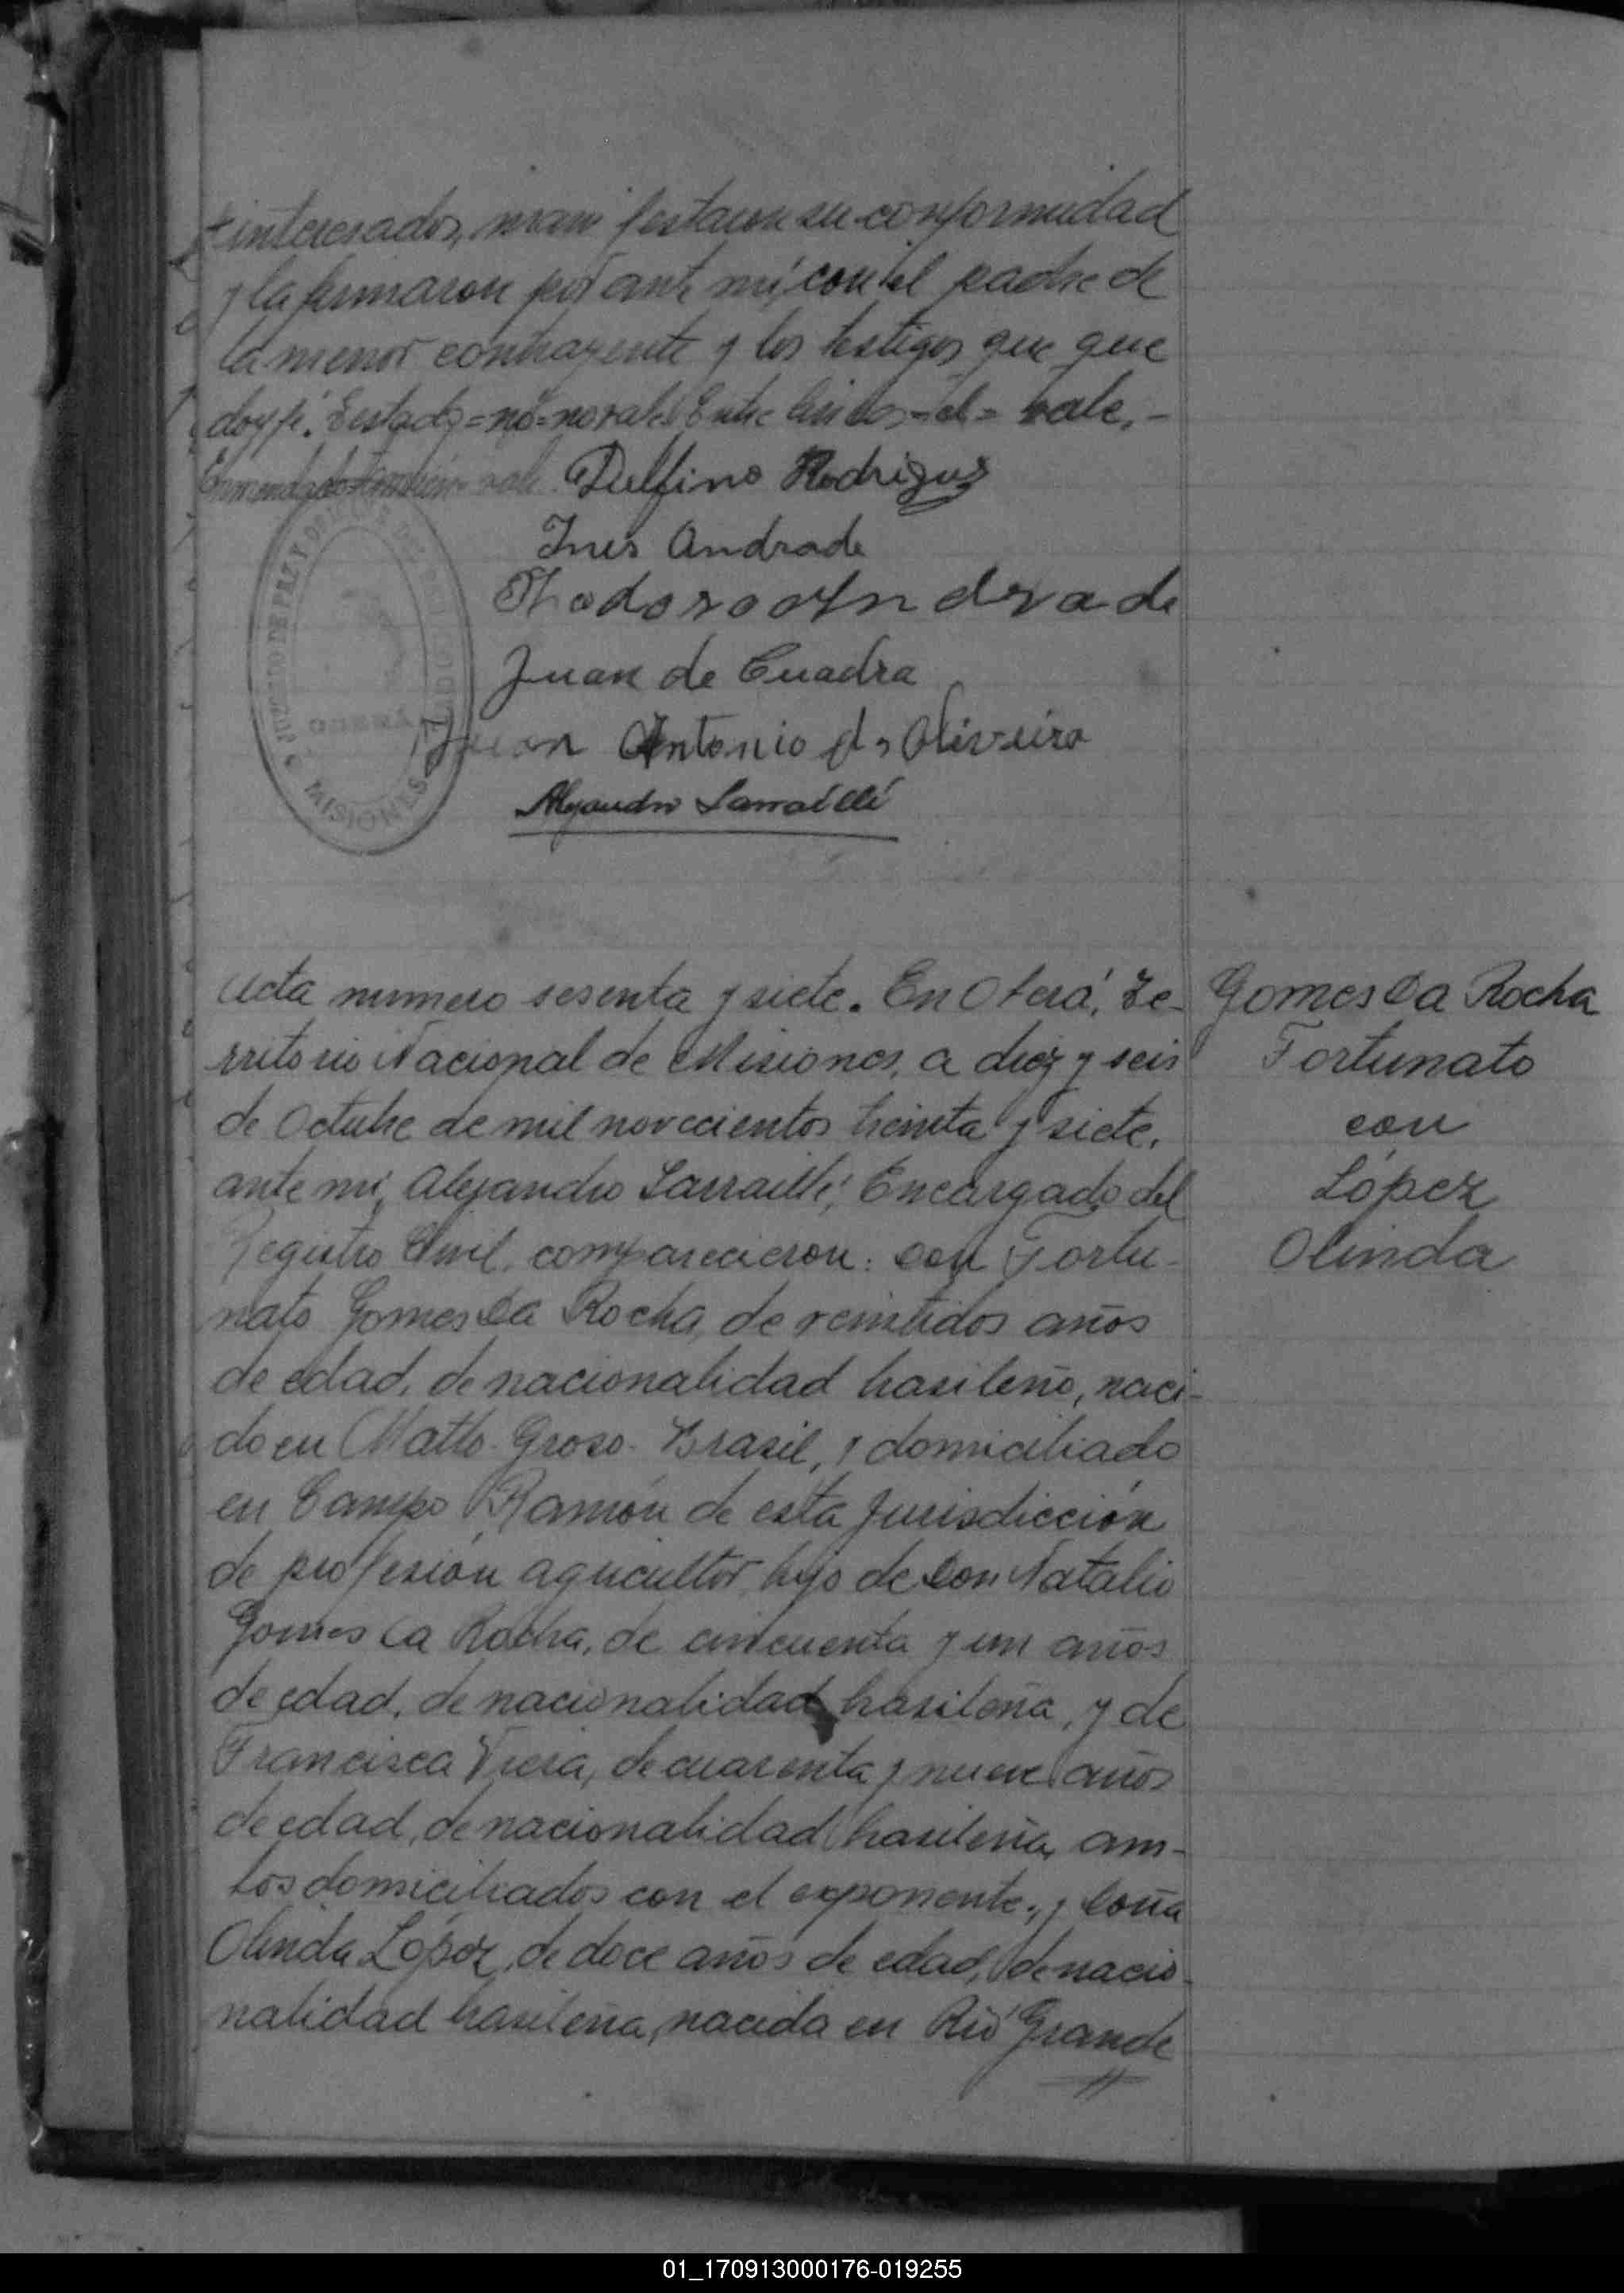 interesados, manifestaron su conformidad
y la firmaron por ante mí, con el padre de
la menor contrayente y los testigos que que
doy fé. Testado=no=no vale. Entre lineas=el=vale.-
Enmendado=también=vale. Delfino Rodrigues
Ines Andrade
Theodoro Andrade
Juan de Cuadra
Juan Antonio de Oliveira
Alejandro Sarraillé
JUZGADO DE PAZ Y
MISIONES
Acta numero sesenta y siete. En Oberá, Te-
rritorio Nacional de Misiones, a diez y seis
de Octubre de mil novecientos treinta y siete,
ante mí, Alejandro Sarraillé, Encargado del
Registro Civil, comparecieron: Don Fortu-
nato Gomes Da Rocha, de veintidos años
de edad, de nacionalidad brasileño, naci-
do en Matto-Groso-Brasil, y domiciliado
en Campo Ramón de esta Jurisdicción
de profesión agricultor, hijo de Don Natalio
Gomes Da Rocha, de cincuenta y un años
de edad, de nacionalidad brasileña, y de
Francisca Viera, de cuarenta y nueve años
de edad, de nacionalidad brasileña, am-
bos domiciliados con el exponente; y Doña
Olinda López, de doce años de edad, de nacio-
nalidad brasileña, nacida en Rio Grande
Gomes Da Rocha
Fortunato
con
López
Olinda
01_170913000176-019255